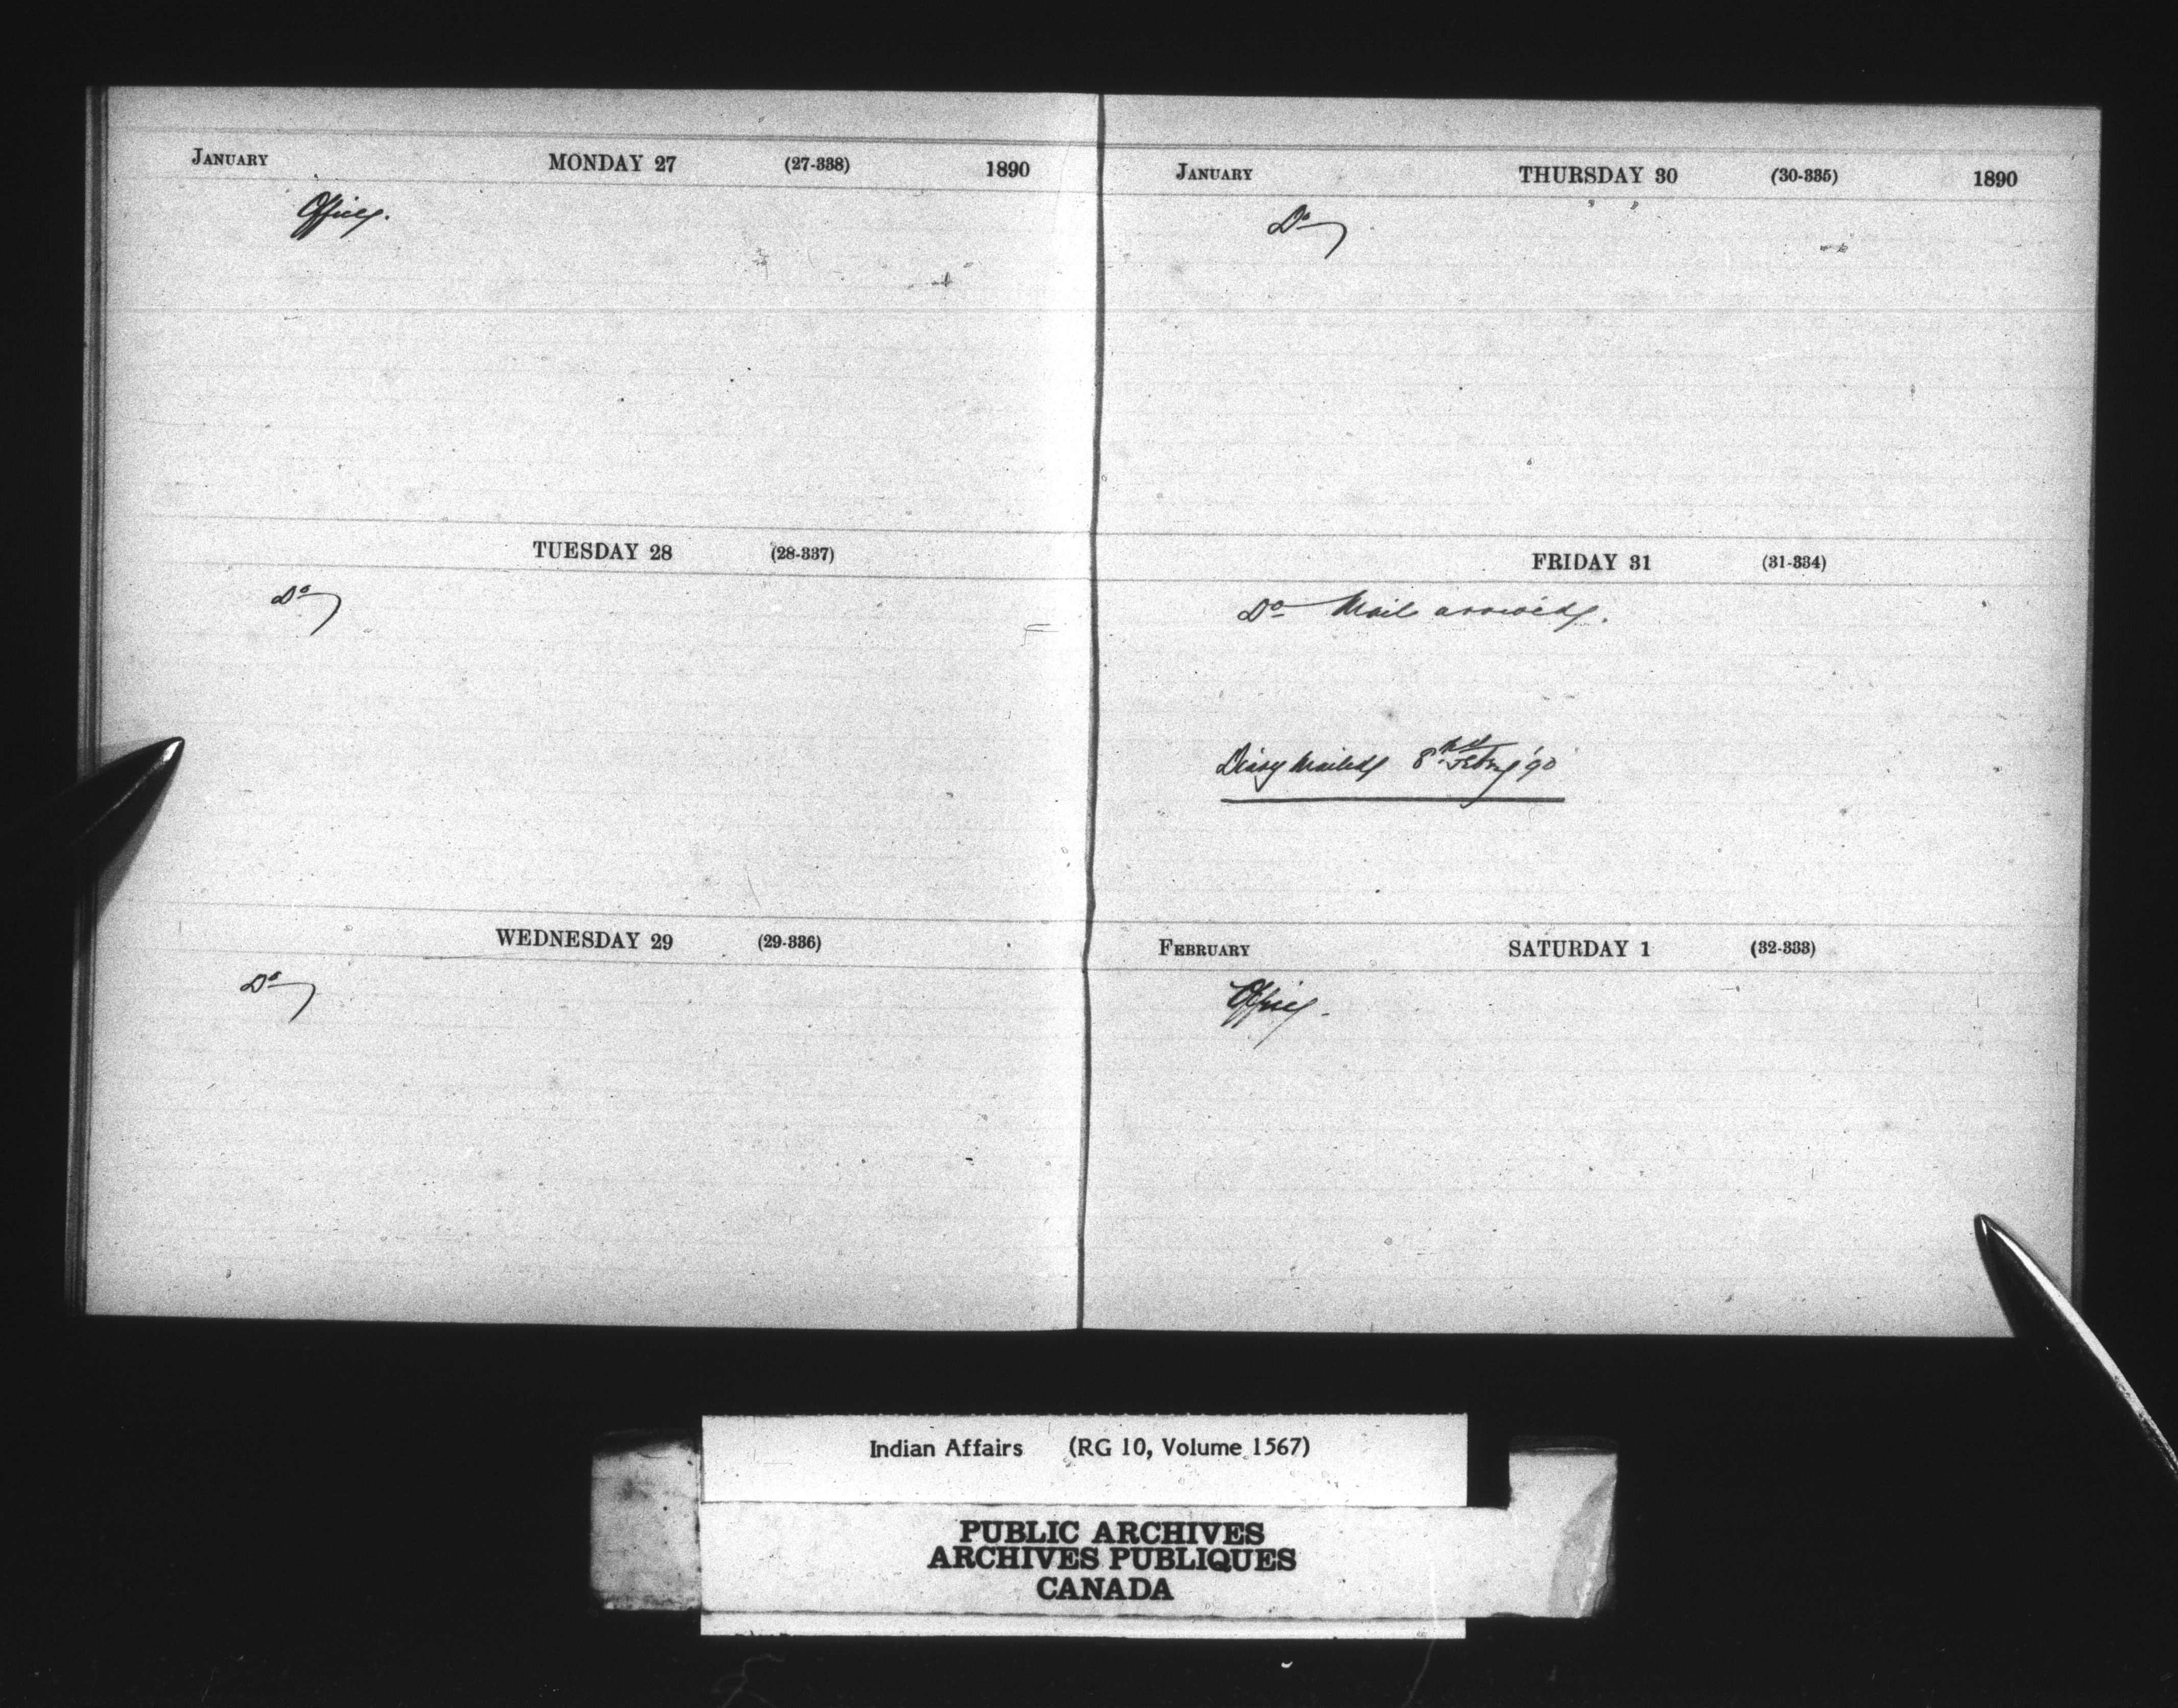 JANUARY MONDAY 27 (27-338) 1890
Office.
TUESDAY 28 (28-337)
Do
WEDNESDAY 29 (29-336)
Do
JANUARY THURSDAY 30 (30-335) 1890
Do
FRIDAY 31 (31-334)
Do Mail arrived.
Diary Mailed 8th Feby '90
FEBRUARY SATURDAY 1 (32-333)
Office.
Indian Affairs (RG 10, Volume 1567)
PUBLIC ARCHIVES
ARCHIVES PUBLIQUES
CANADA